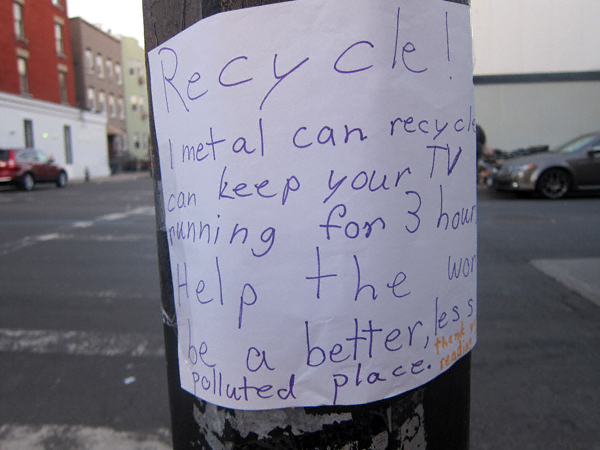 Recycle!
1 metal can recycle
can keep your TV
running for 3 hour
Help the wor
be a better, less
polluted place.
thank y
reading